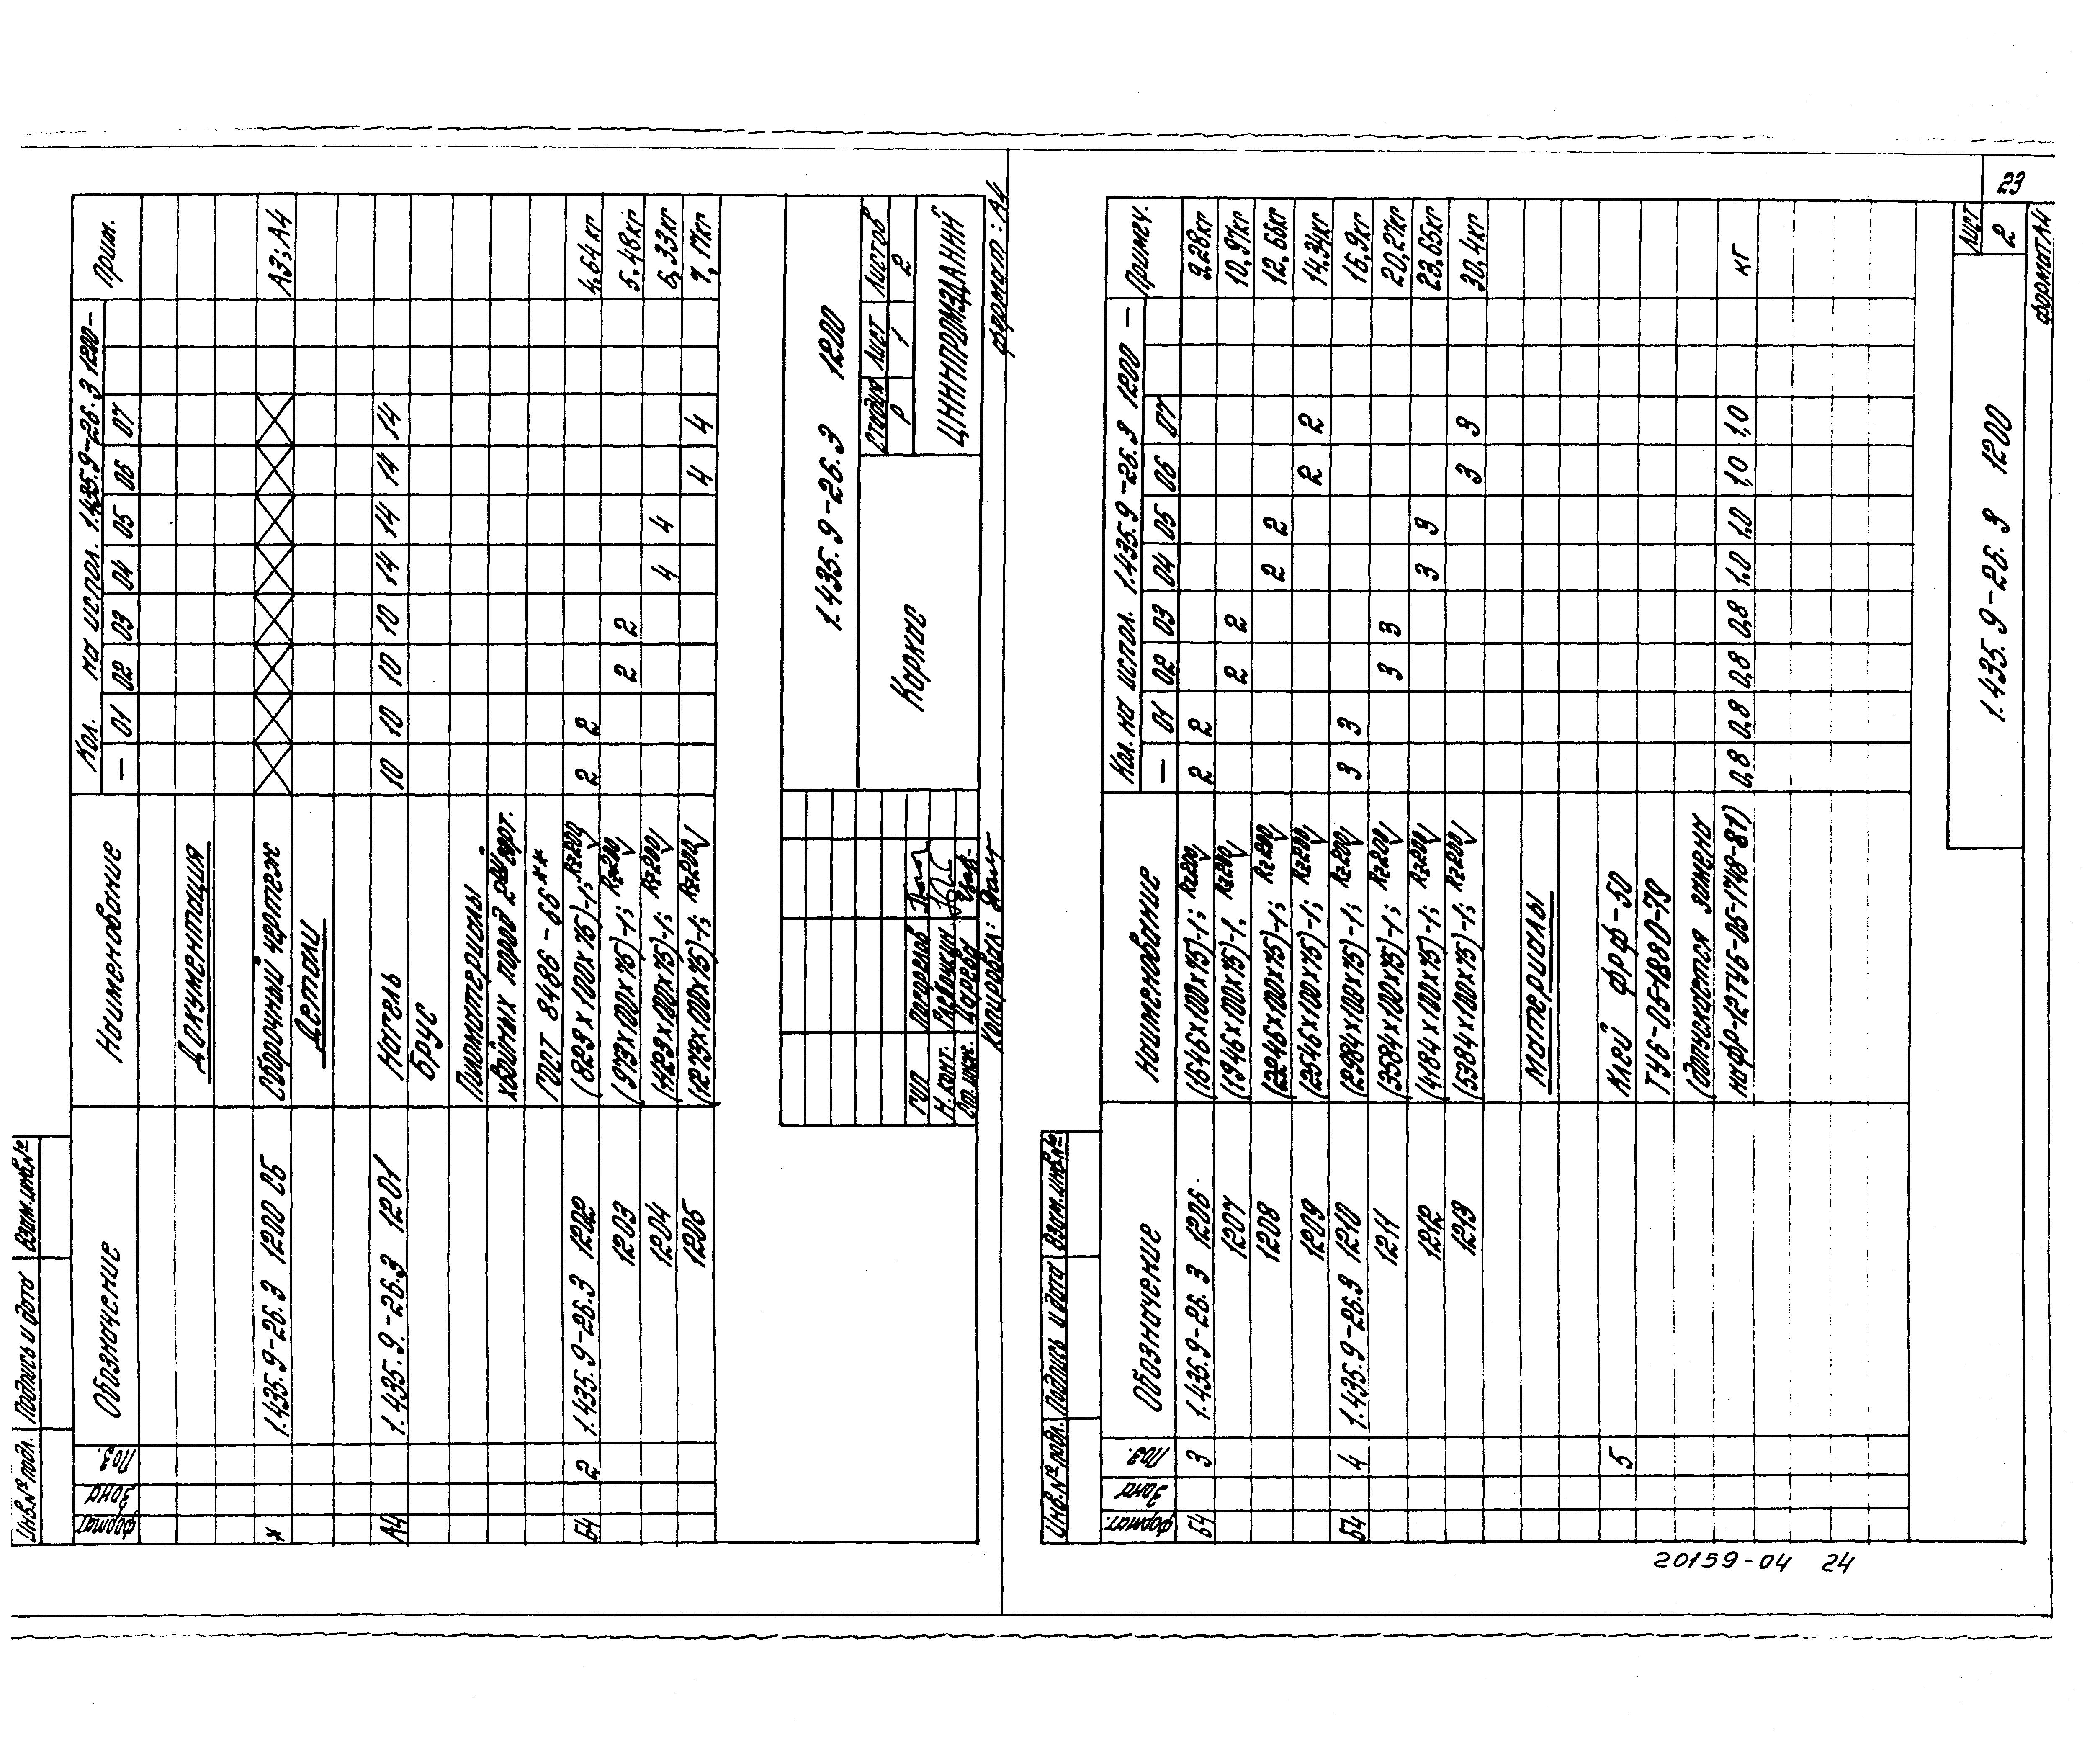 Формат Зона Поз. Обозначение Наименование Кол. на испол. 1.435.9-26.3 1200- Прим.
— 01 02 03 04 05 06 07
Документация
* 1.435.9-26.3 1200 СБ Сборочный чертеж А3;А4
Детали
А4 1.435.9-26.3 1201 Нагель 10 10 10 10 14 14 14 14
Брус
Пиломатериалы
хвойных пород 2й сорт.
ГОСТ 8486-66**
Б4 2 1.435.9-26.3 1202 (823х100х75)-1; Rz200 2 2 4,64кг
1203 (973х100х75)-1; Rz200 2 2 5,48кг
1204 (1123х100х75)-1; Rz200 4 4 6,33кг
1205 (1273х100х75)-1; Rz200 4 4 7,17кг
Инв.№ подл. Подпись и дата Взам.инв.№
1.435.9-26.3 1200
ГИП
Н.конт.
Ст.инж. Царева
Каркас
Стадия Лист Листов
Р 1 2
ЦНИИПРОМЗДАНИЙ
Копировал:
формат: А4
Формат. Зона Поз. Обозначение Наименование Кол. на испол. 1.435.9-26.3 1200 — Примеч.
— 01 02 03 04 05 06 07
Б4 3 1.435.9-26.3 1206 (1646х100х75)-1; Rz200 2 2 9,28кг
1207 (1946х100х75)-1; Rz200 2 2 10,97кг
1208 (2246х100х75)-1; Rz200 2 2 12,66кг
1209 (2546х100х75)-1; Rz200 2 2 14,34кг
Б4 4 1.435.9-26.3 1210 (2984х100х75)-1; Rz200 3 3 16,9кг
1211 (3584х100х75)-1; Rz200 3 3 20,27кг
1212 (4184х100х75)-1; Rz200 3 3 23,65кг
1213 (5384х100х75)-1; Rz200 3 3 30,4кг
Материалы
5 Клей ФРФ-50
ТУ6-05-1880-79
(допускается замена
на ФР-12 ТУ6-05-1748-81) 0,8 0,8 0,8 0,8 1,0 1,0 1,0 1,0 кг
Инв.№ подл. Подпись и дата Взам.инв.№
1.435.9-26.3 1200
Лист
2
23
формат А4
20159-04 24